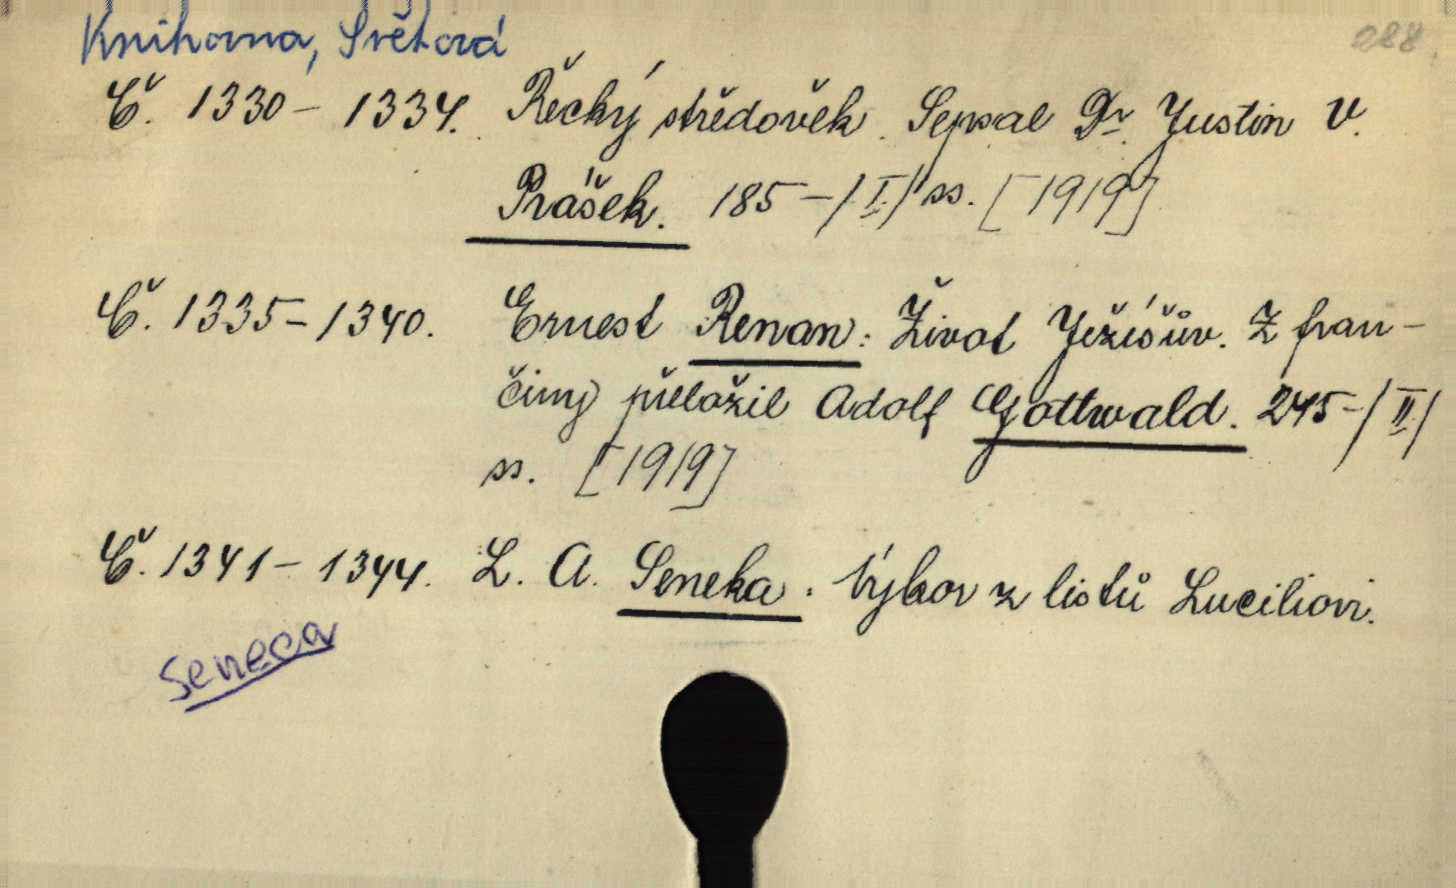 Knihovna, Světová
288
Č. 1330 – 1334. Řecký středověk. Sepsal Dr. Justin V.
Prášek. 185 – /I./ ss. [1919]
Č. 1335 – 1340. Ernest Renan: Život Ježíšův. Z fran-
činy přeložil Adolf Gottwald. 245 – /II./
ss. [1919]
Č. 1341 – 1344. L. A. Seneka. Výbor z listů Luciliovi.
Seneca